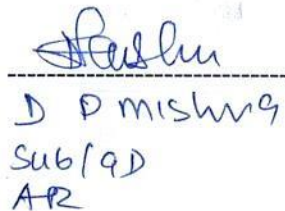 D D mishra
Sub/GD
AR